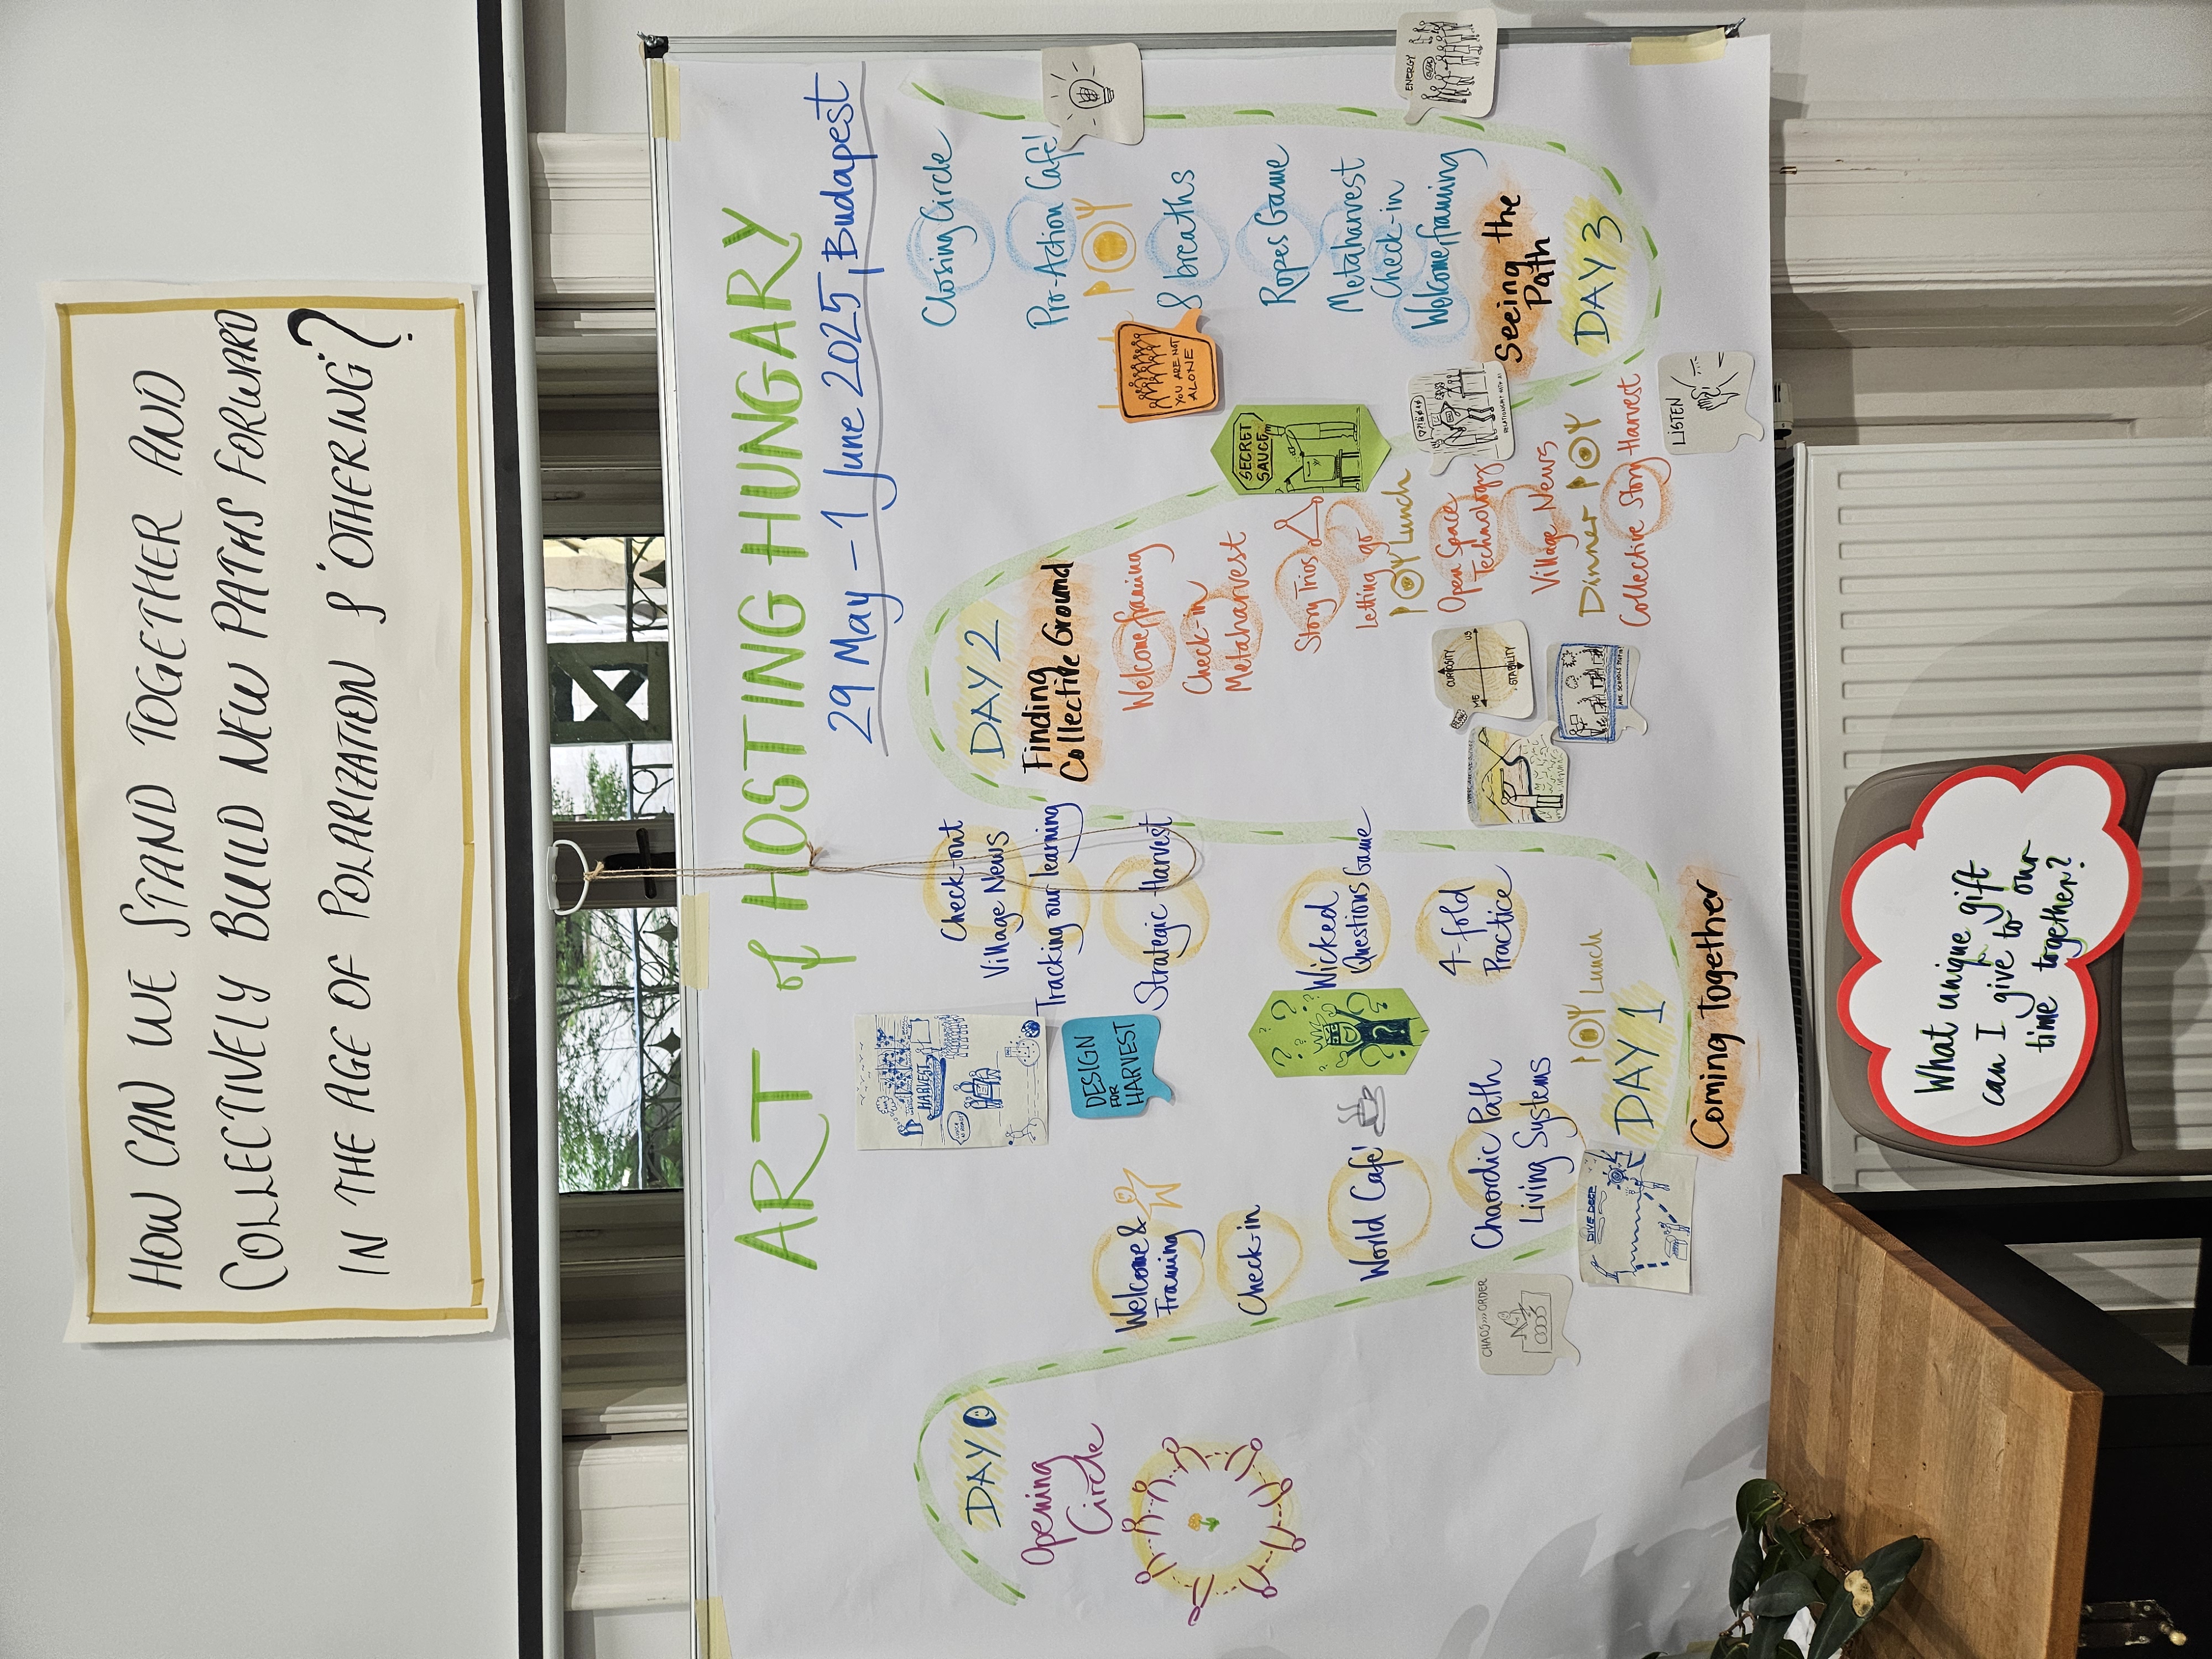 HOW CAN WE STAND TOGETHER AND
COLLECTIVELY BUILD NEW PATHS FORWARD
IN THE AGE OF POLARIZATION & "OTHERING"?
ART of HOSTING HUNGARY
29 May - 1 June 2025, Budapest
DAY 0
Opening
Circle
Welcome &
Framing
Check-in
World Café
Chaordic Path
Living Systems
CHAOS >>> ORDER
DIVE DEEP
DAY 1
Coming Together
Lunch
4-fold
Practice
Wicked
Questions Game
Strategic Harvest
Tracking our learning
Village News
Check-out
HARVEST
DESIGN
FOR
HARVEST
DAY 2
Finding
Collective Ground
Welcome, framing
Check-in
Metaharvest
Story Trios
Letting go
Lunch
Open Space
Technology
Village News
Dinner
Collective Story Harvest
CURIOSITY
ME
US
STABILITY
SECRET
SAUCE
RELATIONSHIP WITH AI
LISTEN
DAY 3
Seeing the
Path
Welcome, framing
Check-in
Metaharvest
Ropes Game
8 breaths
Pro-Action Café!
Closing Circle
YOU ARE NOT
ALONE
ENERGY
What unique gift
can I give to our
time together?